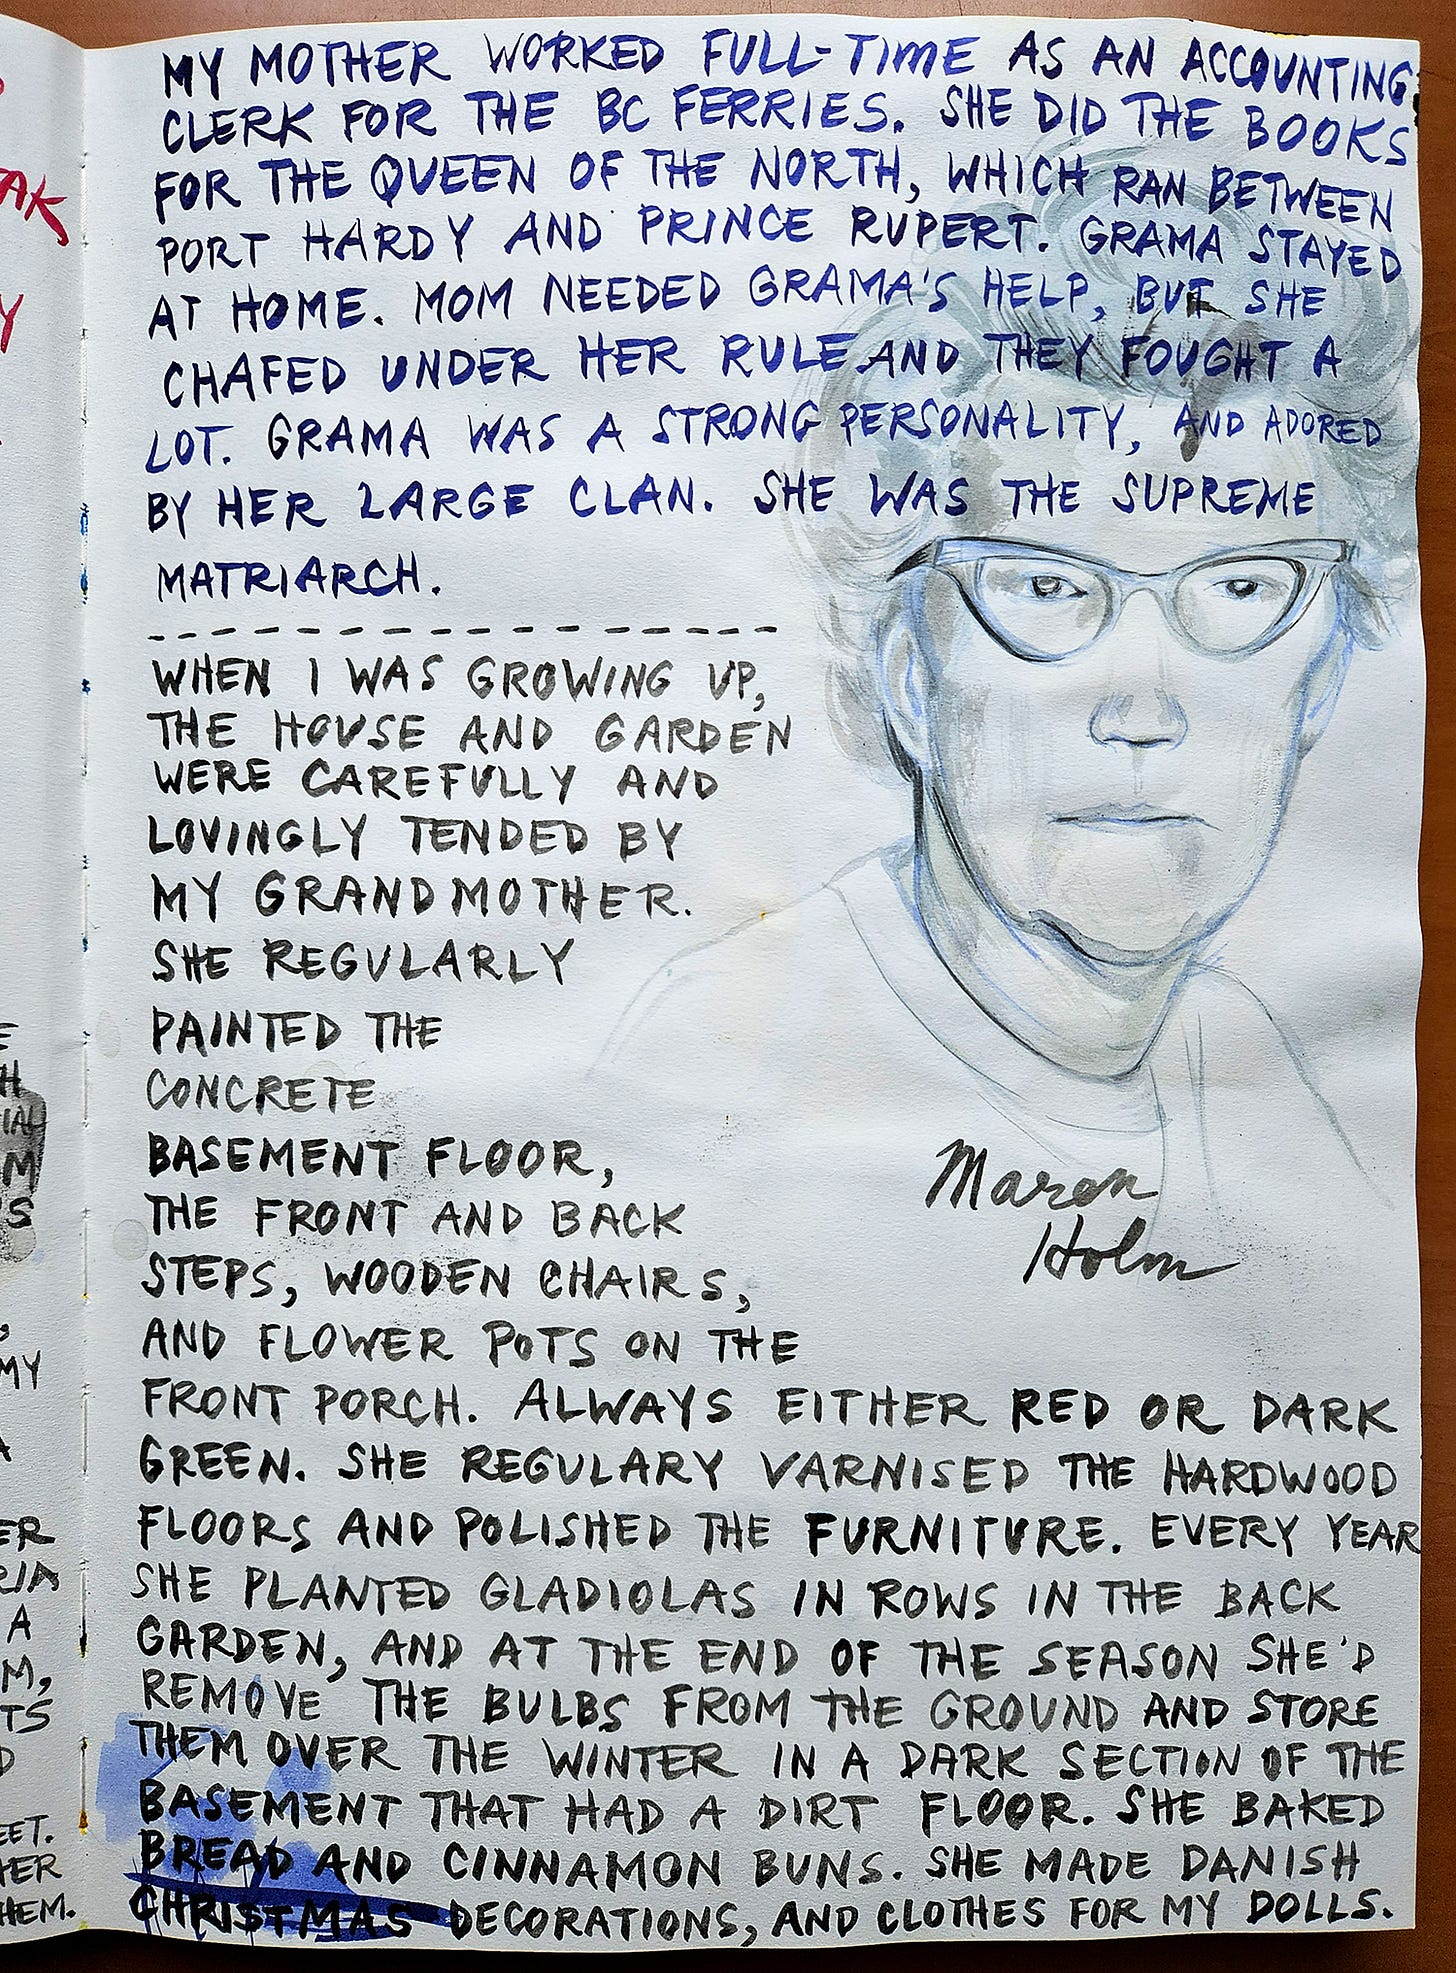 MY MOTHER WORKED FULL-TIME AS AN ACCOUNTING
CLERK FOR THE BC FERRIES. SHE DID THE BOOKS
FOR THE QUEEN OF THE NORTH, WHICH RAN BETWEEN
PORT HARDY AND PRINCE RUPERT. GRAMA STAYED
AT HOME. MOM NEEDED GRAMA'S HELP, BUT SHE
CHAFED UNDER HER RULE AND THEY FOUGHT A
LOT. GRAMA WAS A STRONG PERSONALITY, AND ADORED
BY HER LARGE CLAN. SHE WAS THE SUPREME
MATRIARCH.
WHEN I WAS GROWING UP,
THE HOUSE AND GARDEN
WERE CAREFULLY AND
LOVINGLY TENDED BY
MY GRANDMOTHER.
SHE REGULARLY
PAINTED THE
CONCRETE
BASEMENT FLOOR,
THE FRONT AND BACK
STEPS, WOODEN CHAIRS,
AND FLOWER POTS ON THE
FRONT PORCH. ALWAYS EITHER RED OR DARK
GREEN. SHE REGULARY VARNISED THE HARDWOOD
FLOORS AND POLISHED THE FURNITURE. EVERY YEAR
SHE PLANTED GLADIOLAS IN ROWS IN THE BACK
GARDEN, AND AT THE END OF THE SEASON SHE'D
REMOVE THE BULBS FROM THE GROUND AND STORE
THEM OVER THE WINTER IN A DARK SECTION OF THE
BASEMENT THAT HAD A DIRT FLOOR. SHE BAKED
BREAD AND CINNAMON BUNS. SHE MADE DANISH
CHRISTMAS DECORATIONS, AND CLOTHES FOR MY DOLLS.
Maren
Holm
MY
A